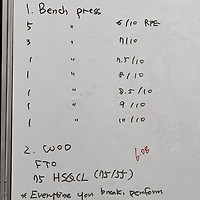 1. Bench press
5 " 6/10 RPE
3 " 7/10
1 " 7.5/10
1 " 8/10
1 " 8.5/10
1 " 9/10
1 " 10/10
2. WOD 6:08
FTO
75 HSQCL (75/55)
* Everytime you break, perform